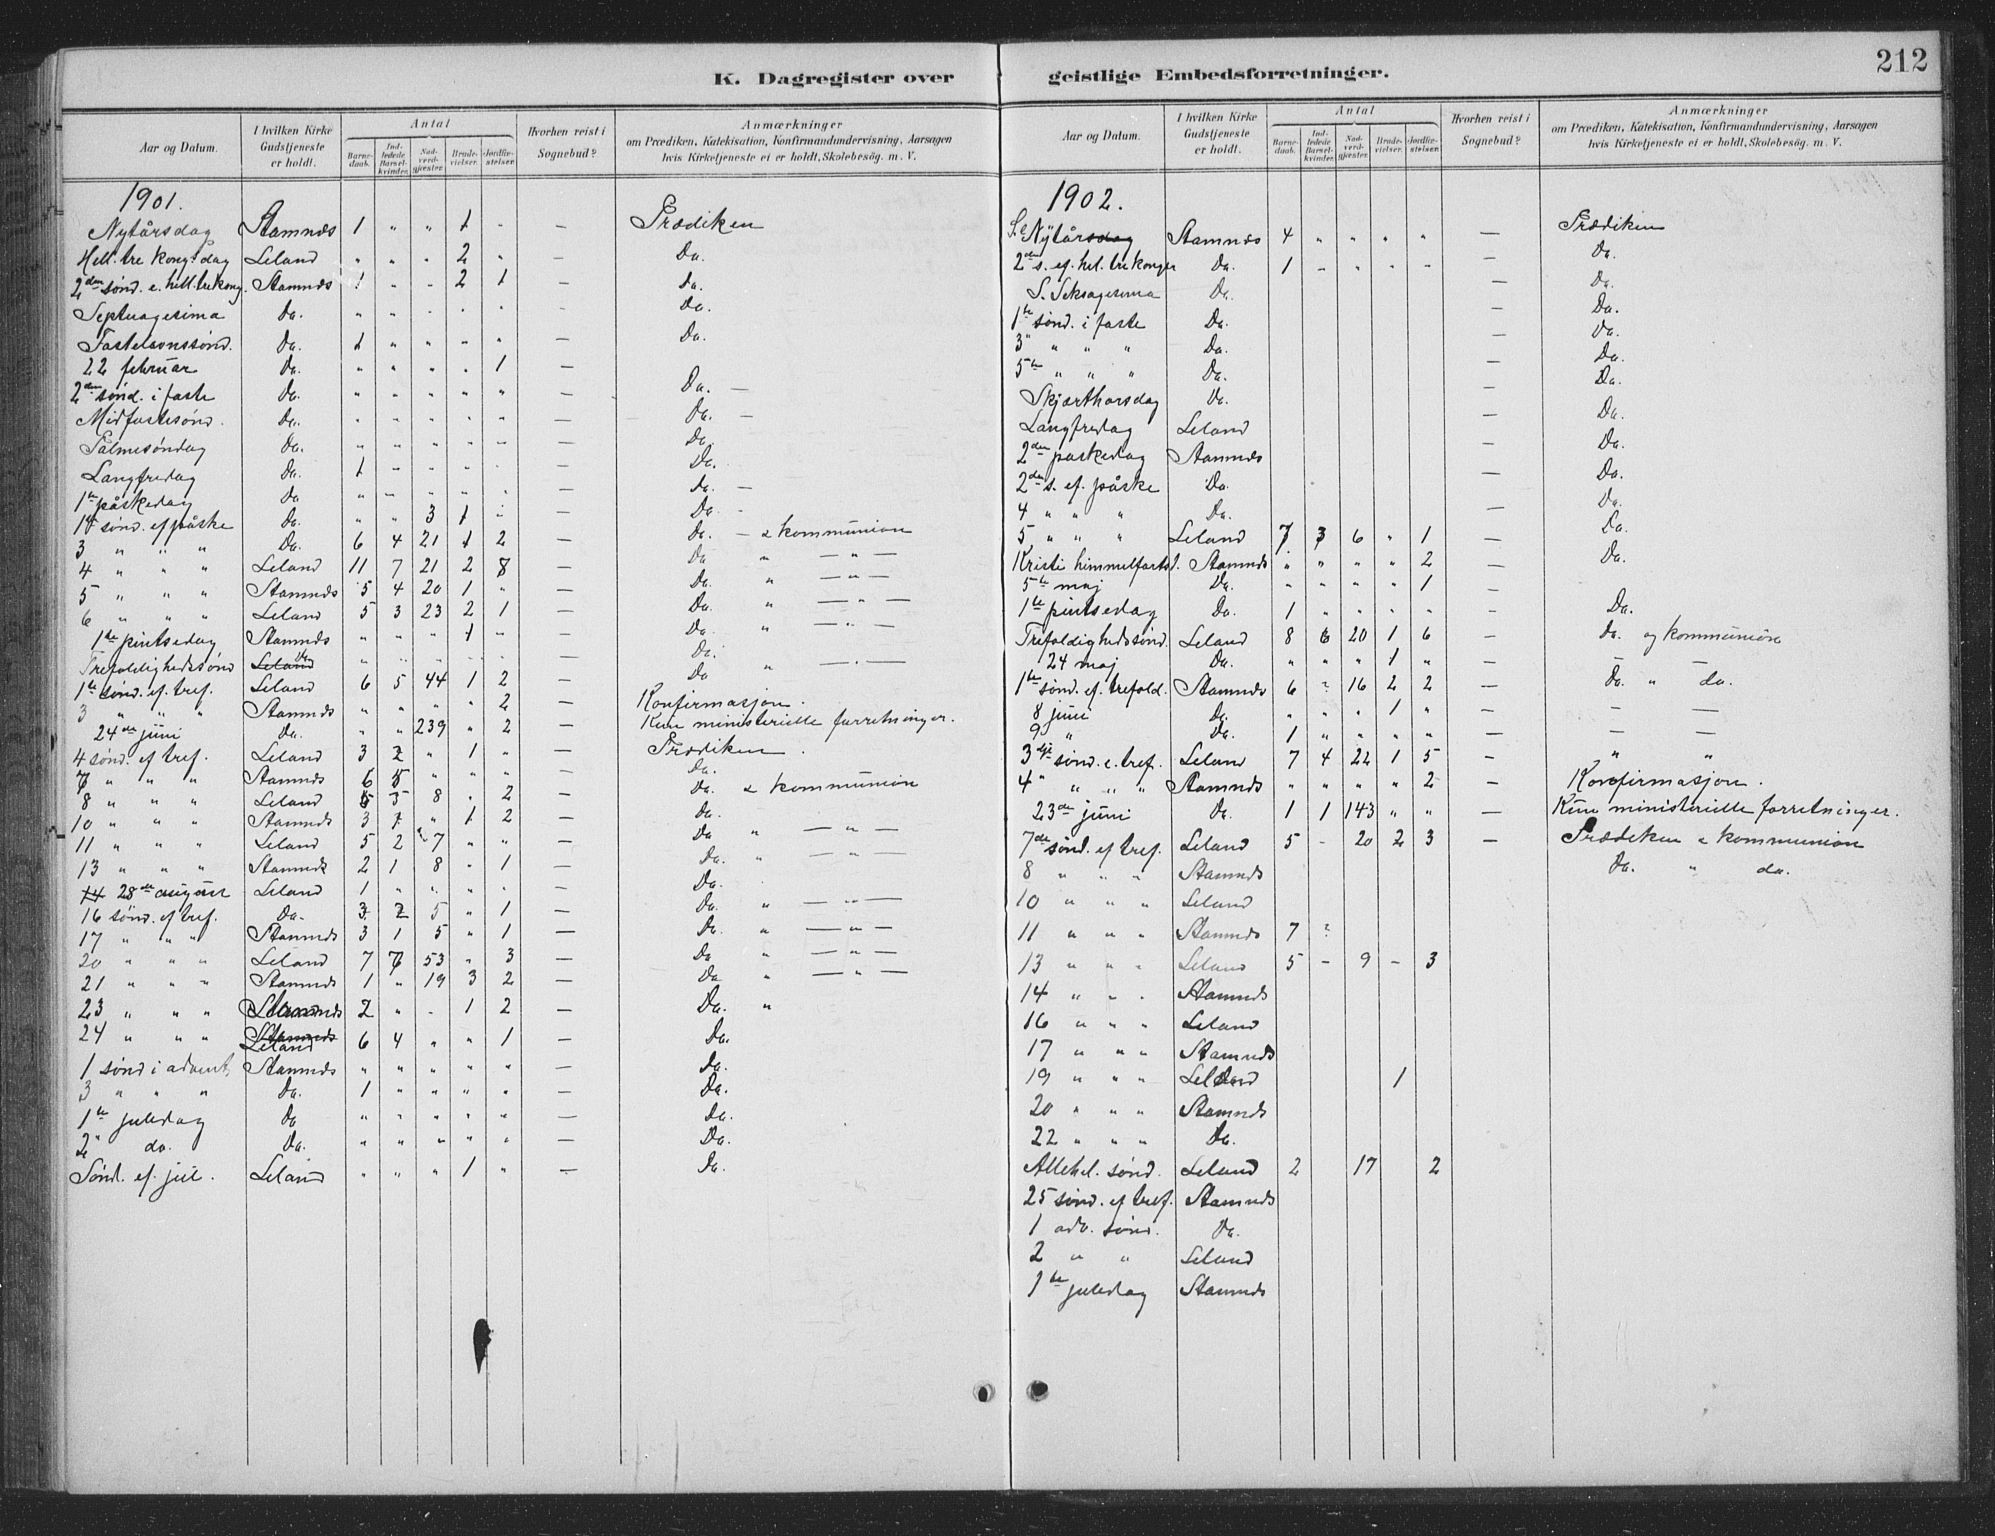 K. Dagregister over
Aar og Datum. | I hvilken Kirke Gudstjeneste er holdt. | Antal | Barnedaab. | Indledede Barselkvinder. | Nadverdgjæster. | Brudevielser. | Jordfæstelser. | Hvorhen reist i Sognebud? | Anmærkninger om Prædiken, Katekisation, Konfirmandundervisning, Aarsagen hvis Kirketjeneste ei er holdt, Skolebesøg. m. V.
1901.
Nytårsdag Stamnæs 1 " " 1 - — Prædiken
Hell. tre kong. dag Leland " " " 2 " — Do.
2den sønd. e. hell. trekong. Stamnæs 1 " " 2 1 — do.
Septuagesima Do. " " " " " — Do.
Fastelavnssønd. Do. 1 " " " " — Do.
22 februar Do. " " " " 1 —
2den sønd. i faste Do. " " " " " — Do. —
Midfastesønd. Do. " " " " - — Do. —
Palmesøndag Do. " " " " - — Do.
Langfredag Do. 1 " " " " — Do.
1te påskedag Do " " " " " — Do. —
1ste sønd. ef påske Do. " " 3 1 " — Do. -
3 " " " Do. 6 4 21 1 2 — Do. — & kommunion
4 " " " Leland 11 7 21 2 8 — Do " — " —
5 " " " Stamnæs 5 4 20 1 " — Do. " — " —
6 " " " Leland 5 3 23 2 1 — Do. " — " —
1te pintsedag Stamnæs " " " 1 " — Do. " — " —
Trefoldighedssønd Leland Do " " " " " — Do.
1te sønd. ef. tref. Leland 6 5 44 1 2 — Do " — " —
3 " " " Stamnæs " " " " 2 — Konfirmasjon.
24de juni Do. " " 239 " 2 — Kun ministerielle forretninger.
4 sønd. ef tref. Leland 3 2 " 1 " — Prædiken.
7 " " " Stamnæs 6 5 " " " — Do.
8 " " " Leland 5 3 8 " 2 — Do. & kommunion
10 " " " Stamnæs 3 1 " 1 2 — Do.
11 " " " Leland 5 2 7 " " — Do " — " —
13 " " " Stamnæs 2 1 8 " 1 — Do. " — " —
14 28de august Leland 1 " " " " — Do.
16 sønd. ef tref. Do. 3 2 5 " 1 — Do. " — " —
17 " " " Stamnæs 3 1 5 " 1 — Do. " — " —
20 " " " Leland 7 6 53 " 3 — Do " — " —
21 " " " Stamnæs 1 " 19 3 2 — Do " — " —
23 " " " Stamnæs 2 " - 1 2 — Do. "
24 " " " Stamnæs Leland 6 4 " " 1 — Do.
1 sønd i advent. Stamnæs " " " " " — Do.
3 " " " Do. 1 " " " " — Do.
1te juledag Do " " " " " — Do.
2" do. Do. " " " " " — Do.
Sønd. ef. jul. Leland " " " 1 " — Do.

geistlige Embedsforretninger.
212
Aar og Datum. | I hvilken Kirke Gudstjeneste er holdt. | Antal | Barnedaab. | Indledede Barselkvinder. | Nadverdgjæster. | Brudevielser. | Jordfæstelser. | Hvorhen reist i Sognebud? | Anmærkninger om Prædiken, Katekisation, Konfirmandundervisning, Aarsagen hvis Kirketjeneste ei er holdt, Skolebesøg. m. V.
1902.
S. e. Nytårsdag Stamnæs 4 " " " " — Prædiken
2den s. ef. hel. trekonger Do. 1 - " " - — Do.
S. Seksagesima Do. — Do.
1te sønd. i faste Do. — Do.
3" " " " Do. — Do.
5te " " " Do. — Do.
Skjærthorsdag Do. — Do.
Langfredag Leland — Do.
2den paskedag Stamnæs — Do.
2den s. ef. påske Do. — Do.
4 " " " Do. — Do.
5 " " " Leland 7 3 6 " 1 — Do.
Kristi himmelfartsd. Stamnæs " " " " 2 — Do.
5te maj Do. " " " " 1 —
1te pintsedag Do. 1 " " " " — Do.
Trefoldighedssønd. Leland 8 6 20 1 6 — Do. og kommunion
24 maj Do. " " " 1 " — — —
1te sønd. ef. trefold. Stamnæs 6 ? 16 2 2 — Do. " do.
8 juni Do. " " " 1 " — — —
9 " Do. 1 " " " " — — —
3dje sønd. e. tref. Leland 7 4 22 1 5 — " "
4" " " " Stamnæs " " " " 2 — Konfirmasjon.
23de juni Do. 1 1 143 " " — Kun ministerielle forretninger.
7de sønd. ef tref. Leland 5 - 20 2 3 — Prædiken & kommunion
8 " " " Stamnæs Do. " do.
10 " " " Leland
11 " " " Stamnæs 7 ?
13 " " " Leland 5 - 9 - 3
14 " " " Stamnæs
16 " " " Leland
17 " " " Stamnæs
19 " " " Leland 1
20 " " " Stamnæs
22 " " " Do.
Allehel. sønd. Leland 2 17 2
25 sønd. ef tref. Stamnæs
1 adv. sønd. Do.
2 " " Leland
1te juledag Stamnæs